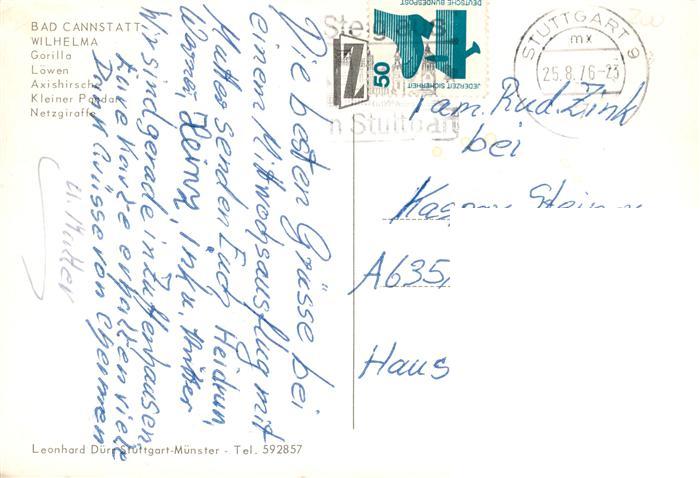 BAD CANNSTATT
WILHELMA
Gorilla
Löwen
Axishirsche
Kleiner Panda
Netzgiraffe
Die besten Grüsse bei
einem Mittwochsausflug mit
Mutter senden Euch Heidrun,
Werner, Heinz, u. Mutter
Wir sind gerade in Zuffenhausen
Eure Karte erhalten viele
Dank Grüsse von
u. Mutter
Leonhard Dürr, Stuttgart-Münster - Tel. 592857
Steiger
in Stuttgart
DEUTSCHE BUNDESPOST
50
JEDERZEIT SICHERHEIT
STUTTGART 9
mx
25.8.76-23
Fam. Rud. Zink
bei
A635
Haus